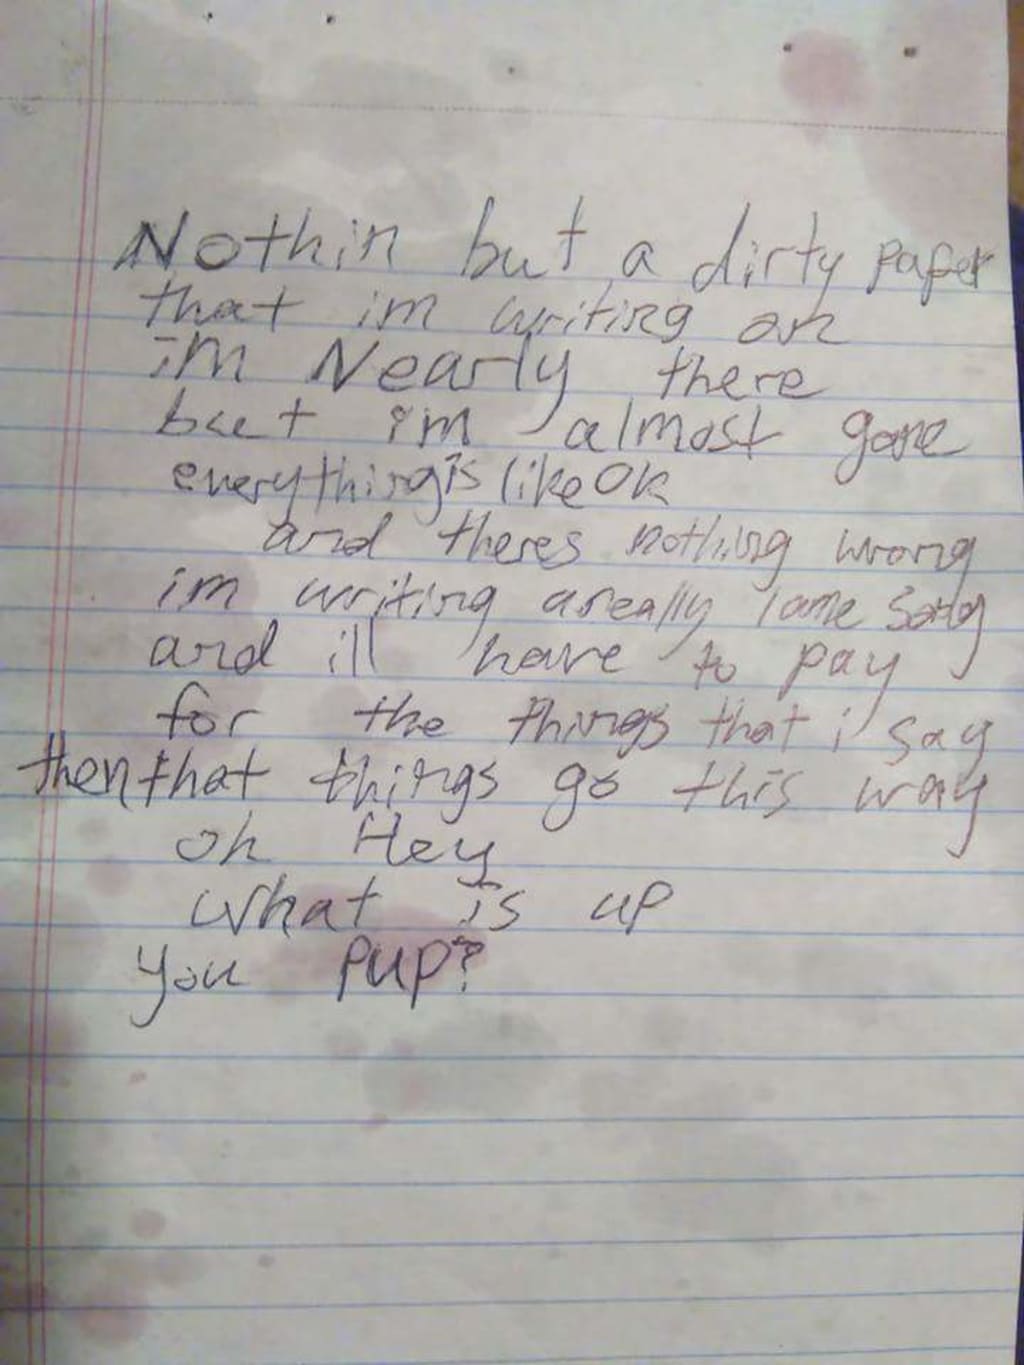 Nothin but a dirty paper
that im writing on
im Nearly there
but im almost gone
everything is like ok
and theres nothing wrong
im writing a really lame song
and ill have to pay
for the things that i say
then that things go this way
oh Hey
what is up
you pup?